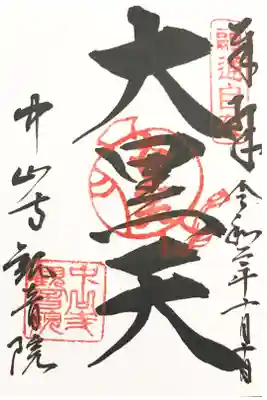 奉拝
令和二年十月十日
大黒天
中山寺 観音院
中山寺
観音院